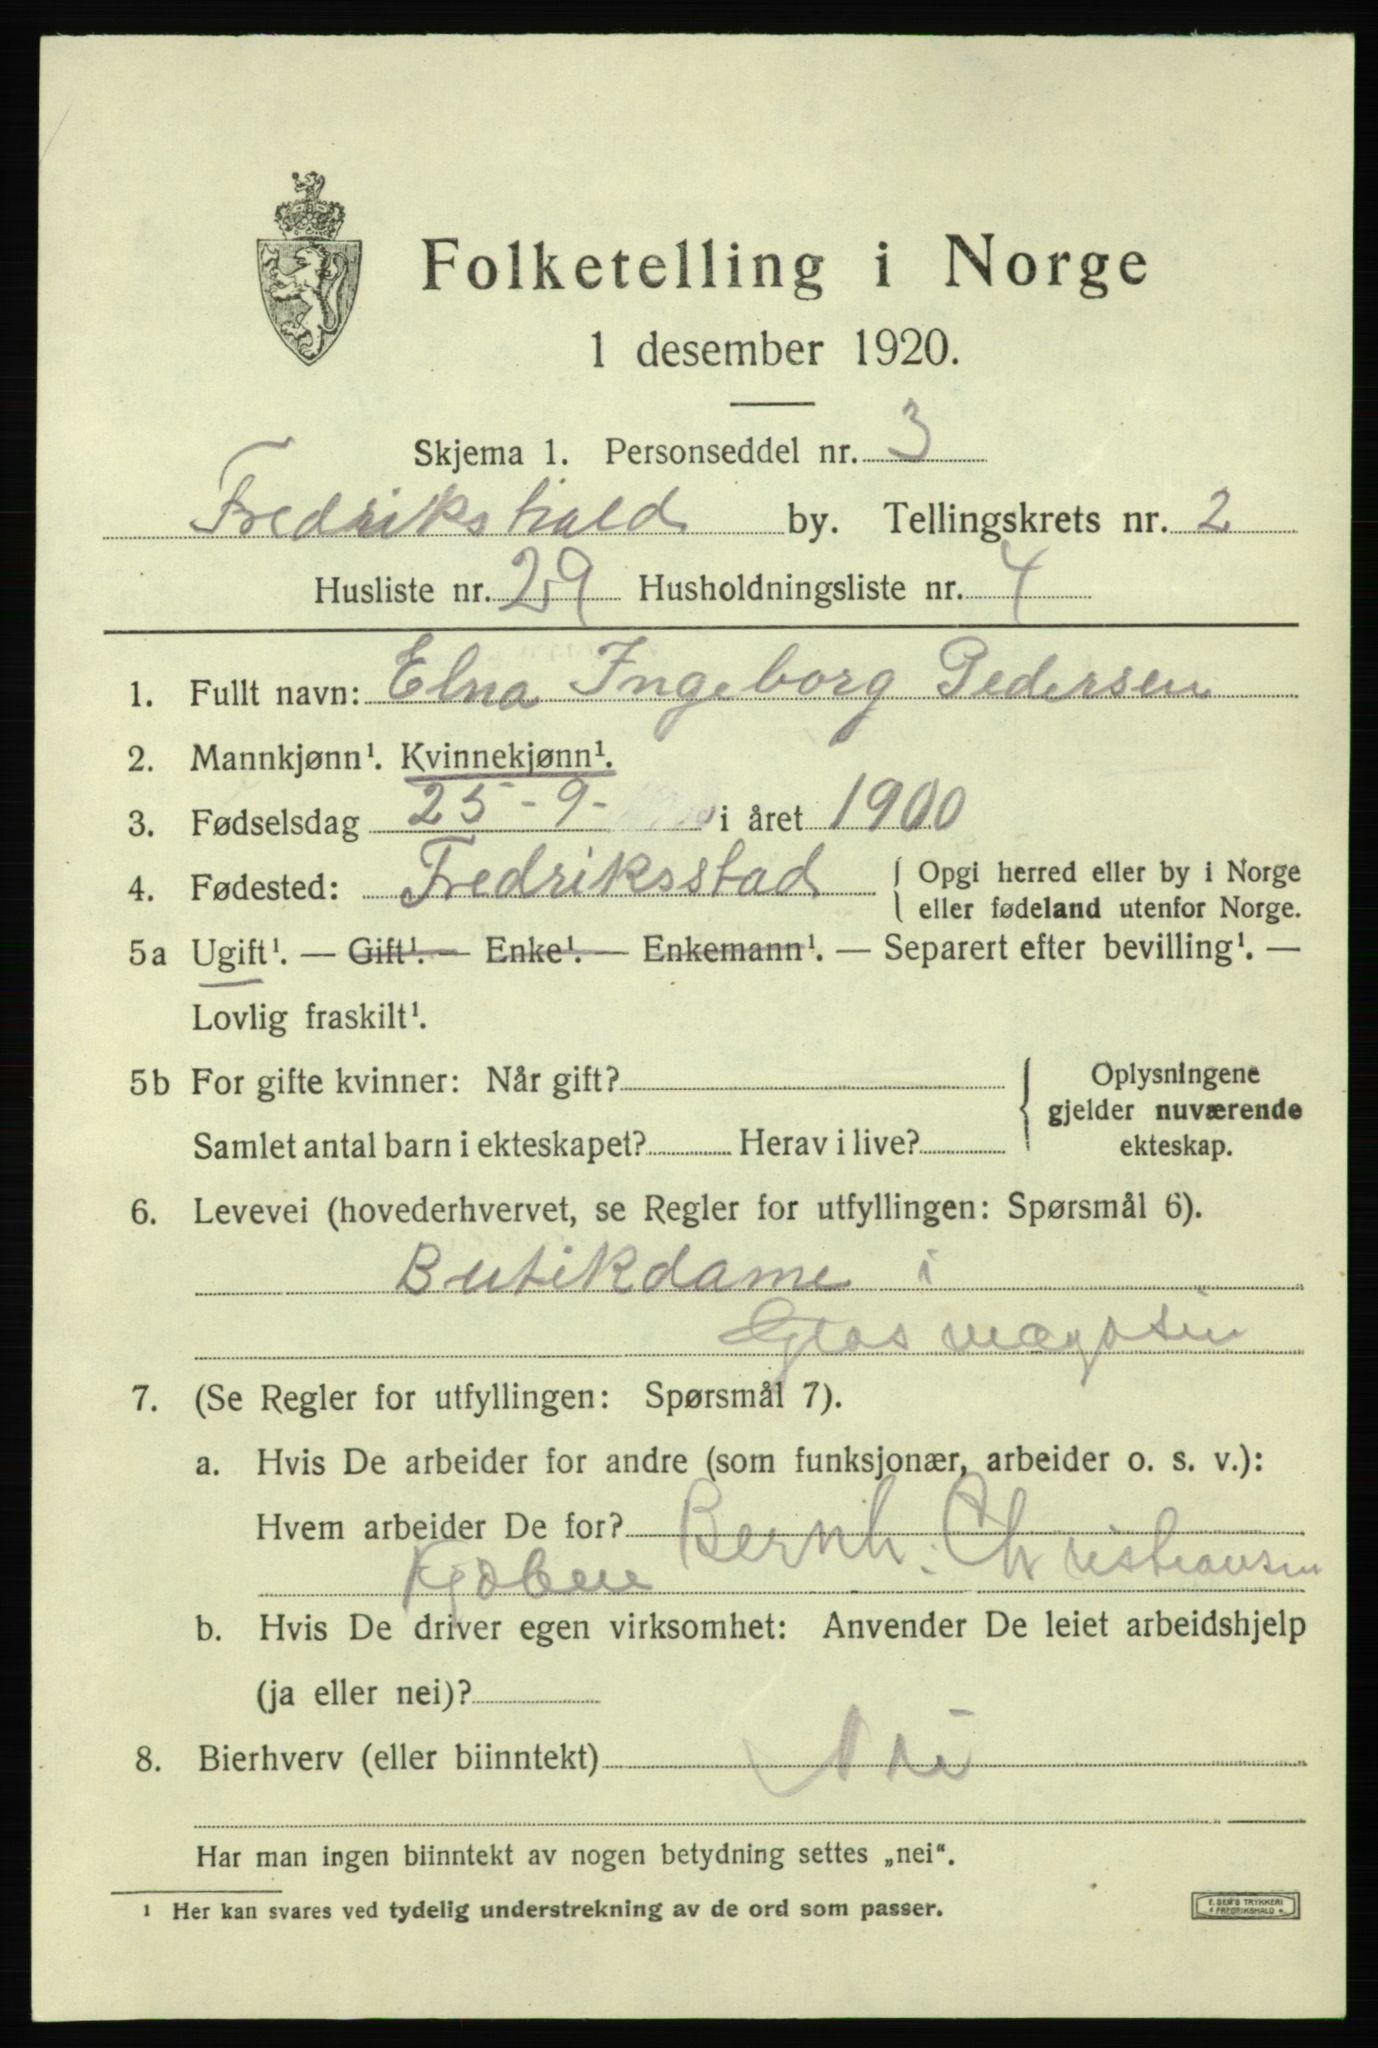 Folketelling i Norge
1 desember 1920.
Skjema 1. Personseddel nr. 3
Fredrikshald by. Tellingskrets nr. 2
Husliste nr. 29 Husholdningsliste nr. 4
1. Fullt navn: Elna Ingeborg Pedersen
2. Mannkjønn¹. Kvinnekjønn¹.
3. Fødselsdag 25-9- i året 1900
4. Fødested: Fredriksstad { Opgi herred eller by i Norge
eller fødeland utenfor Norge.
5a Ugift¹. — Gift¹. — Enke¹. — Enkemann¹. — Separert efter bevilling¹. —
Lovlig fraskilt¹.
5b For gifte kvinner: Når gift? { Oplysningene
gjelder nuværende
Samlet antal barn i ekteskapet? Herav i live? ekteskap.
6. Levevei (hovederhvervet, se Regler for utfyllingen: Spørsmål 6).
Butikdame i
Glasmagasin
7. (Se Regler for utfyllingen: Spørsmål 7).
a. Hvis De arbeider for andre (som funksjonær, arbeider o. s. v.):
Hvem arbeider De for? Bernh. Christiansen
b. Hvis De driver egen virksomhet: Anvender De leiet arbeidshjelp
(ja eller nei)?
8. Bierhverv (eller biinntekt) Nei
Har man ingen biinntekt av nogen betydning settes „nei“.
¹ Her kan svares ved tydelig understrekning av de ord som passer.
E. SEM'S TRYKKERI
FREDRIKSHALD